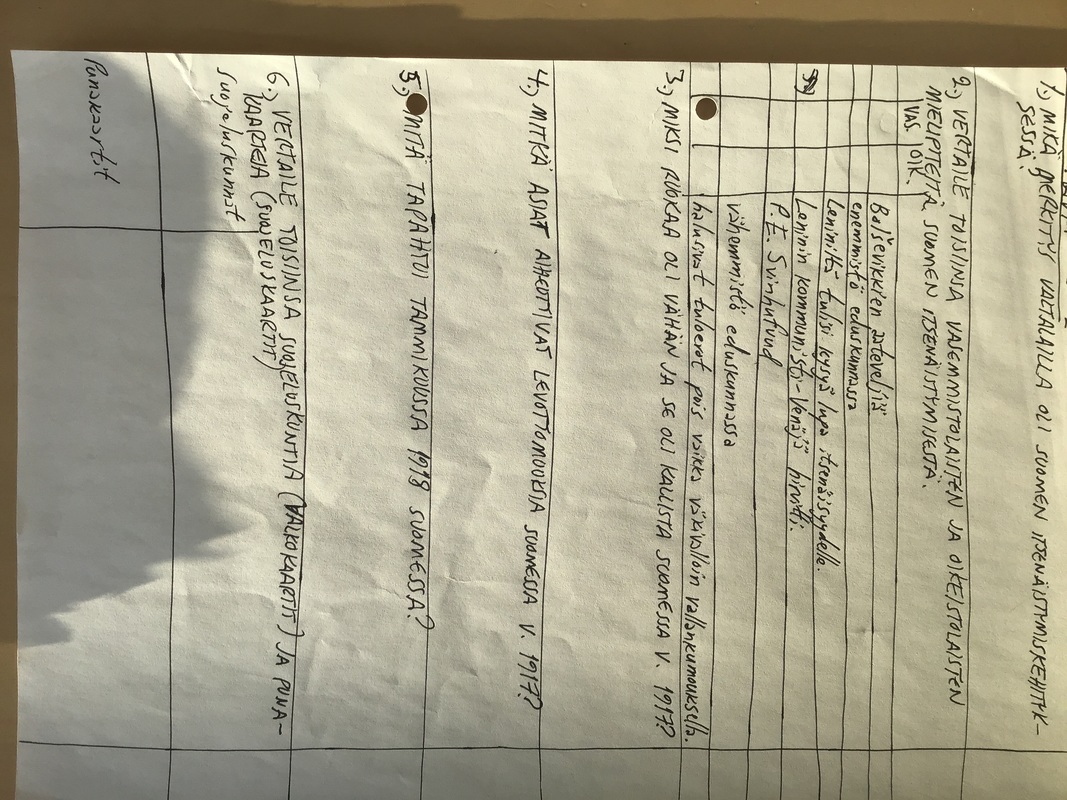 1.) MIKÄ MERKITYS VALTALAILLA OLI SUOMEN ITSENÄISTYMISKEHITYK-
SESSÄ?
2.) VERTAILE TOISIINSA VASEMMISTOLAISTEN JA OIKEISTOLAISTEN
MIELIPITEITÄ SUOMEN ITSENÄISTYMISESTÄ.
VAS. OIK.
Bolševikkien aatoveljiä
enemmistö eduskunnassa
Leniniltä tulisi kysyä lupa itsenäisyydelle.
Leninin kommunisti-Venäjä hirvitti.
P.E. Svinhufvud
vähemmistö eduskunnassa
halusivat tuloerot pois vaikka väkivalloin vallankumouksella.
3.) MIKSI RUOKAA OLI VÄHÄN JA SE OLI KALLISTA SUOMESSA V. 1917?
4.) MITKÄ ASIAT AIHEUTTIVAT LEVOTTOMUUKSIA SUOMESSA V. 1917?
5.) MITÄ TAPAHTUI TAMMIKUUSSA 1918 SUOMESSA?
6.) VERTAILE TOISIINSA SUOJELUSKUNTIA (VALKOKAARTIT) JA PUNA-
KAARTEJA (SUOJELUSKAARTIT)
Suojeluskunnat
Punakaartit